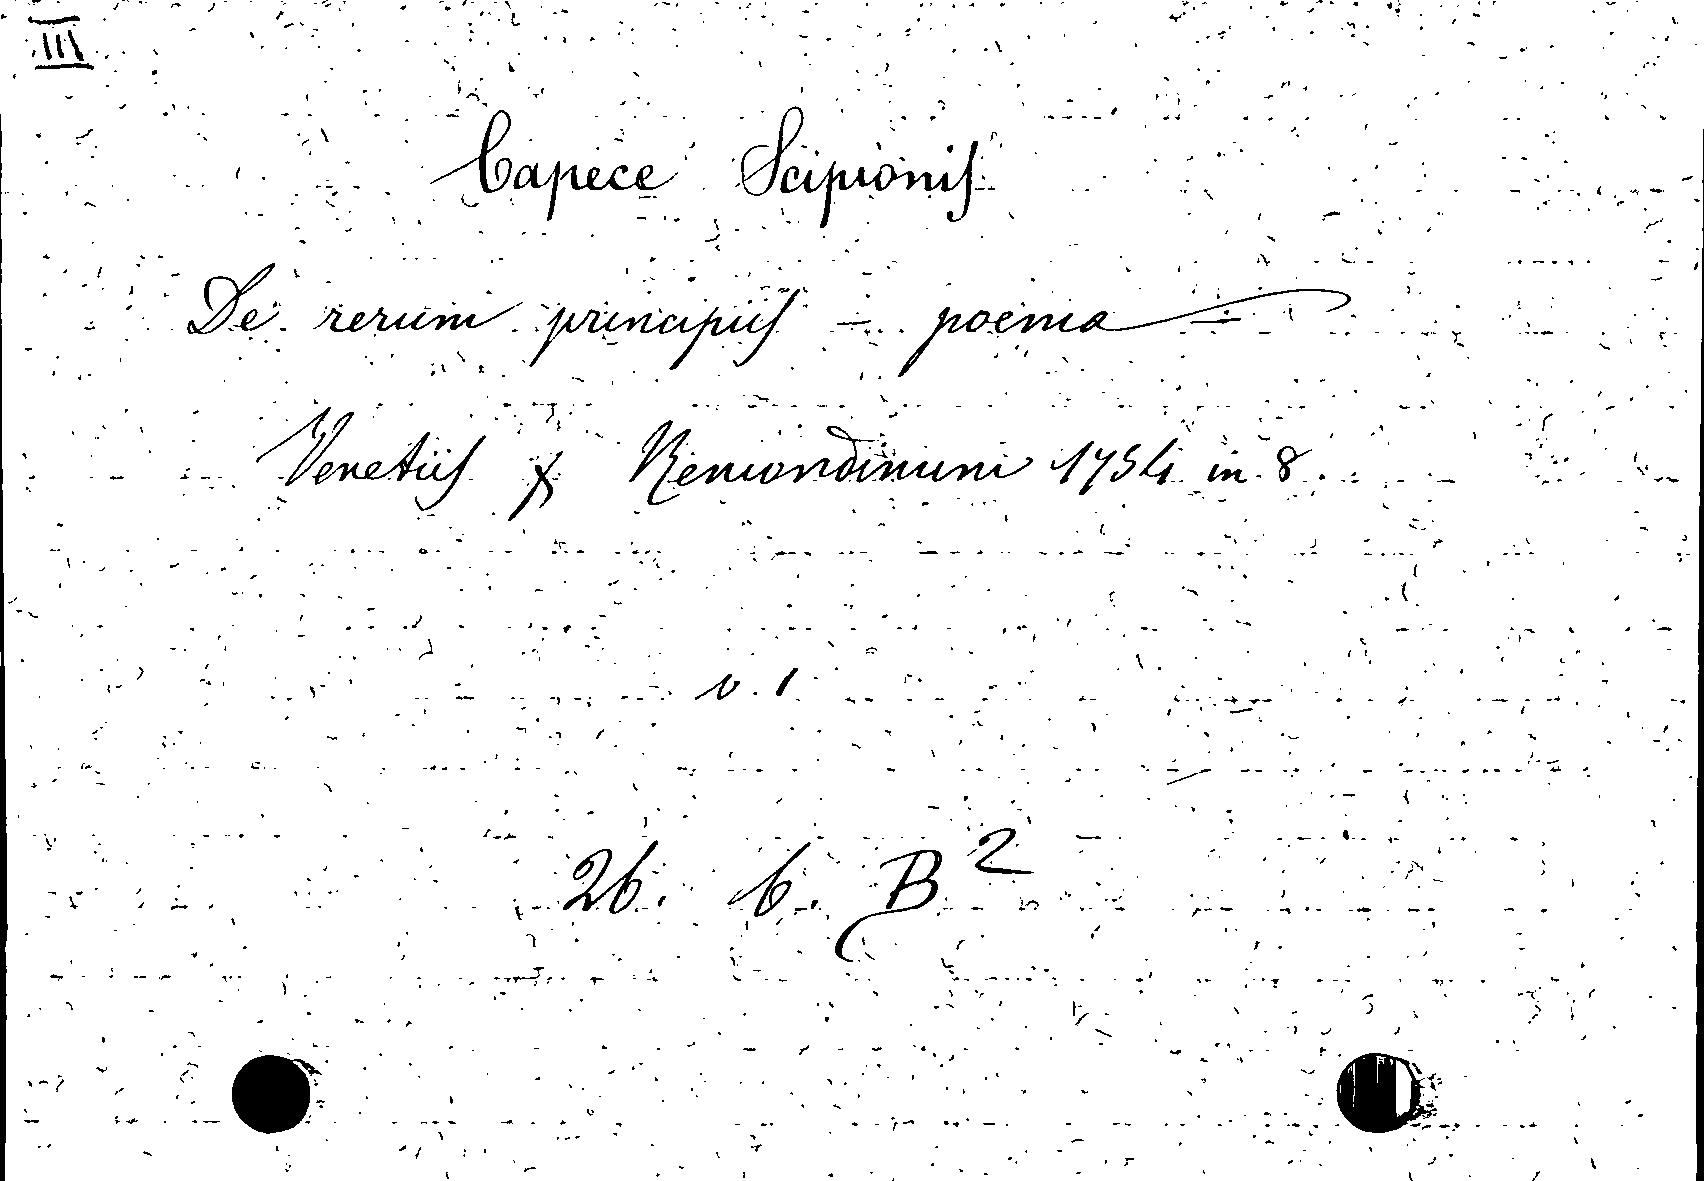 III
Capece Scipionis
De rerum principiis — poema
Venetiis Remondinum 1754 in 8.
v. 1
26. 6. B 2